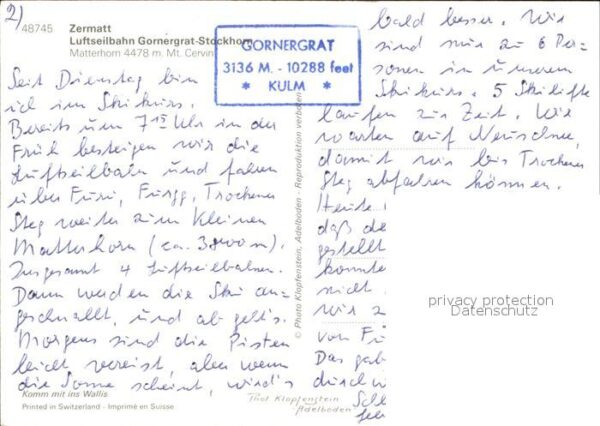 2)
48745 Zermatt
Luftseilbahn Gornergrat-Stockhorn
Matterhorn 4478 m. Mt. Cervin
GORNERGRAT
3136 M. - 10288 feet
* KULM *
Seit Dienstag bin
ich im Skikurs.
Bereits um 7 15 Uhr in der
Früh besteigen wir die
Luftseilbahn und fahren
über Furi, Furgg, Trockener
Steg weiter zum Kleinen
Matterhorn (ca. 3800 m).
Insgesamt 4 Luftseilbahnen.
Dann werden die Ski an-
geschnallt, und ab geht's.
Morgens sind die Pisten
leicht vereist, aber wenn
die Sonne scheint, wird's
Komm mit ins Wallis
Printed in Switzerland - Imprimé en Suisse
© Photo Klopfenstein, Adelboden - Reproduktion verboten
Phot Klopfenstein
Adelboden
bald besser. Wir
sind nur zu 6 Per-
sonen in unserem
Skikurs. 5 Skilifte
laufen zur Zeit. Wir
warten auf Neuschnee,
damit wir bis Trockener
Steg abfahren können.
Heute
daß de
gestellt
konnte
nicht
wir z
von Fu
Das gab
durch
privacy protection
Datenschutz